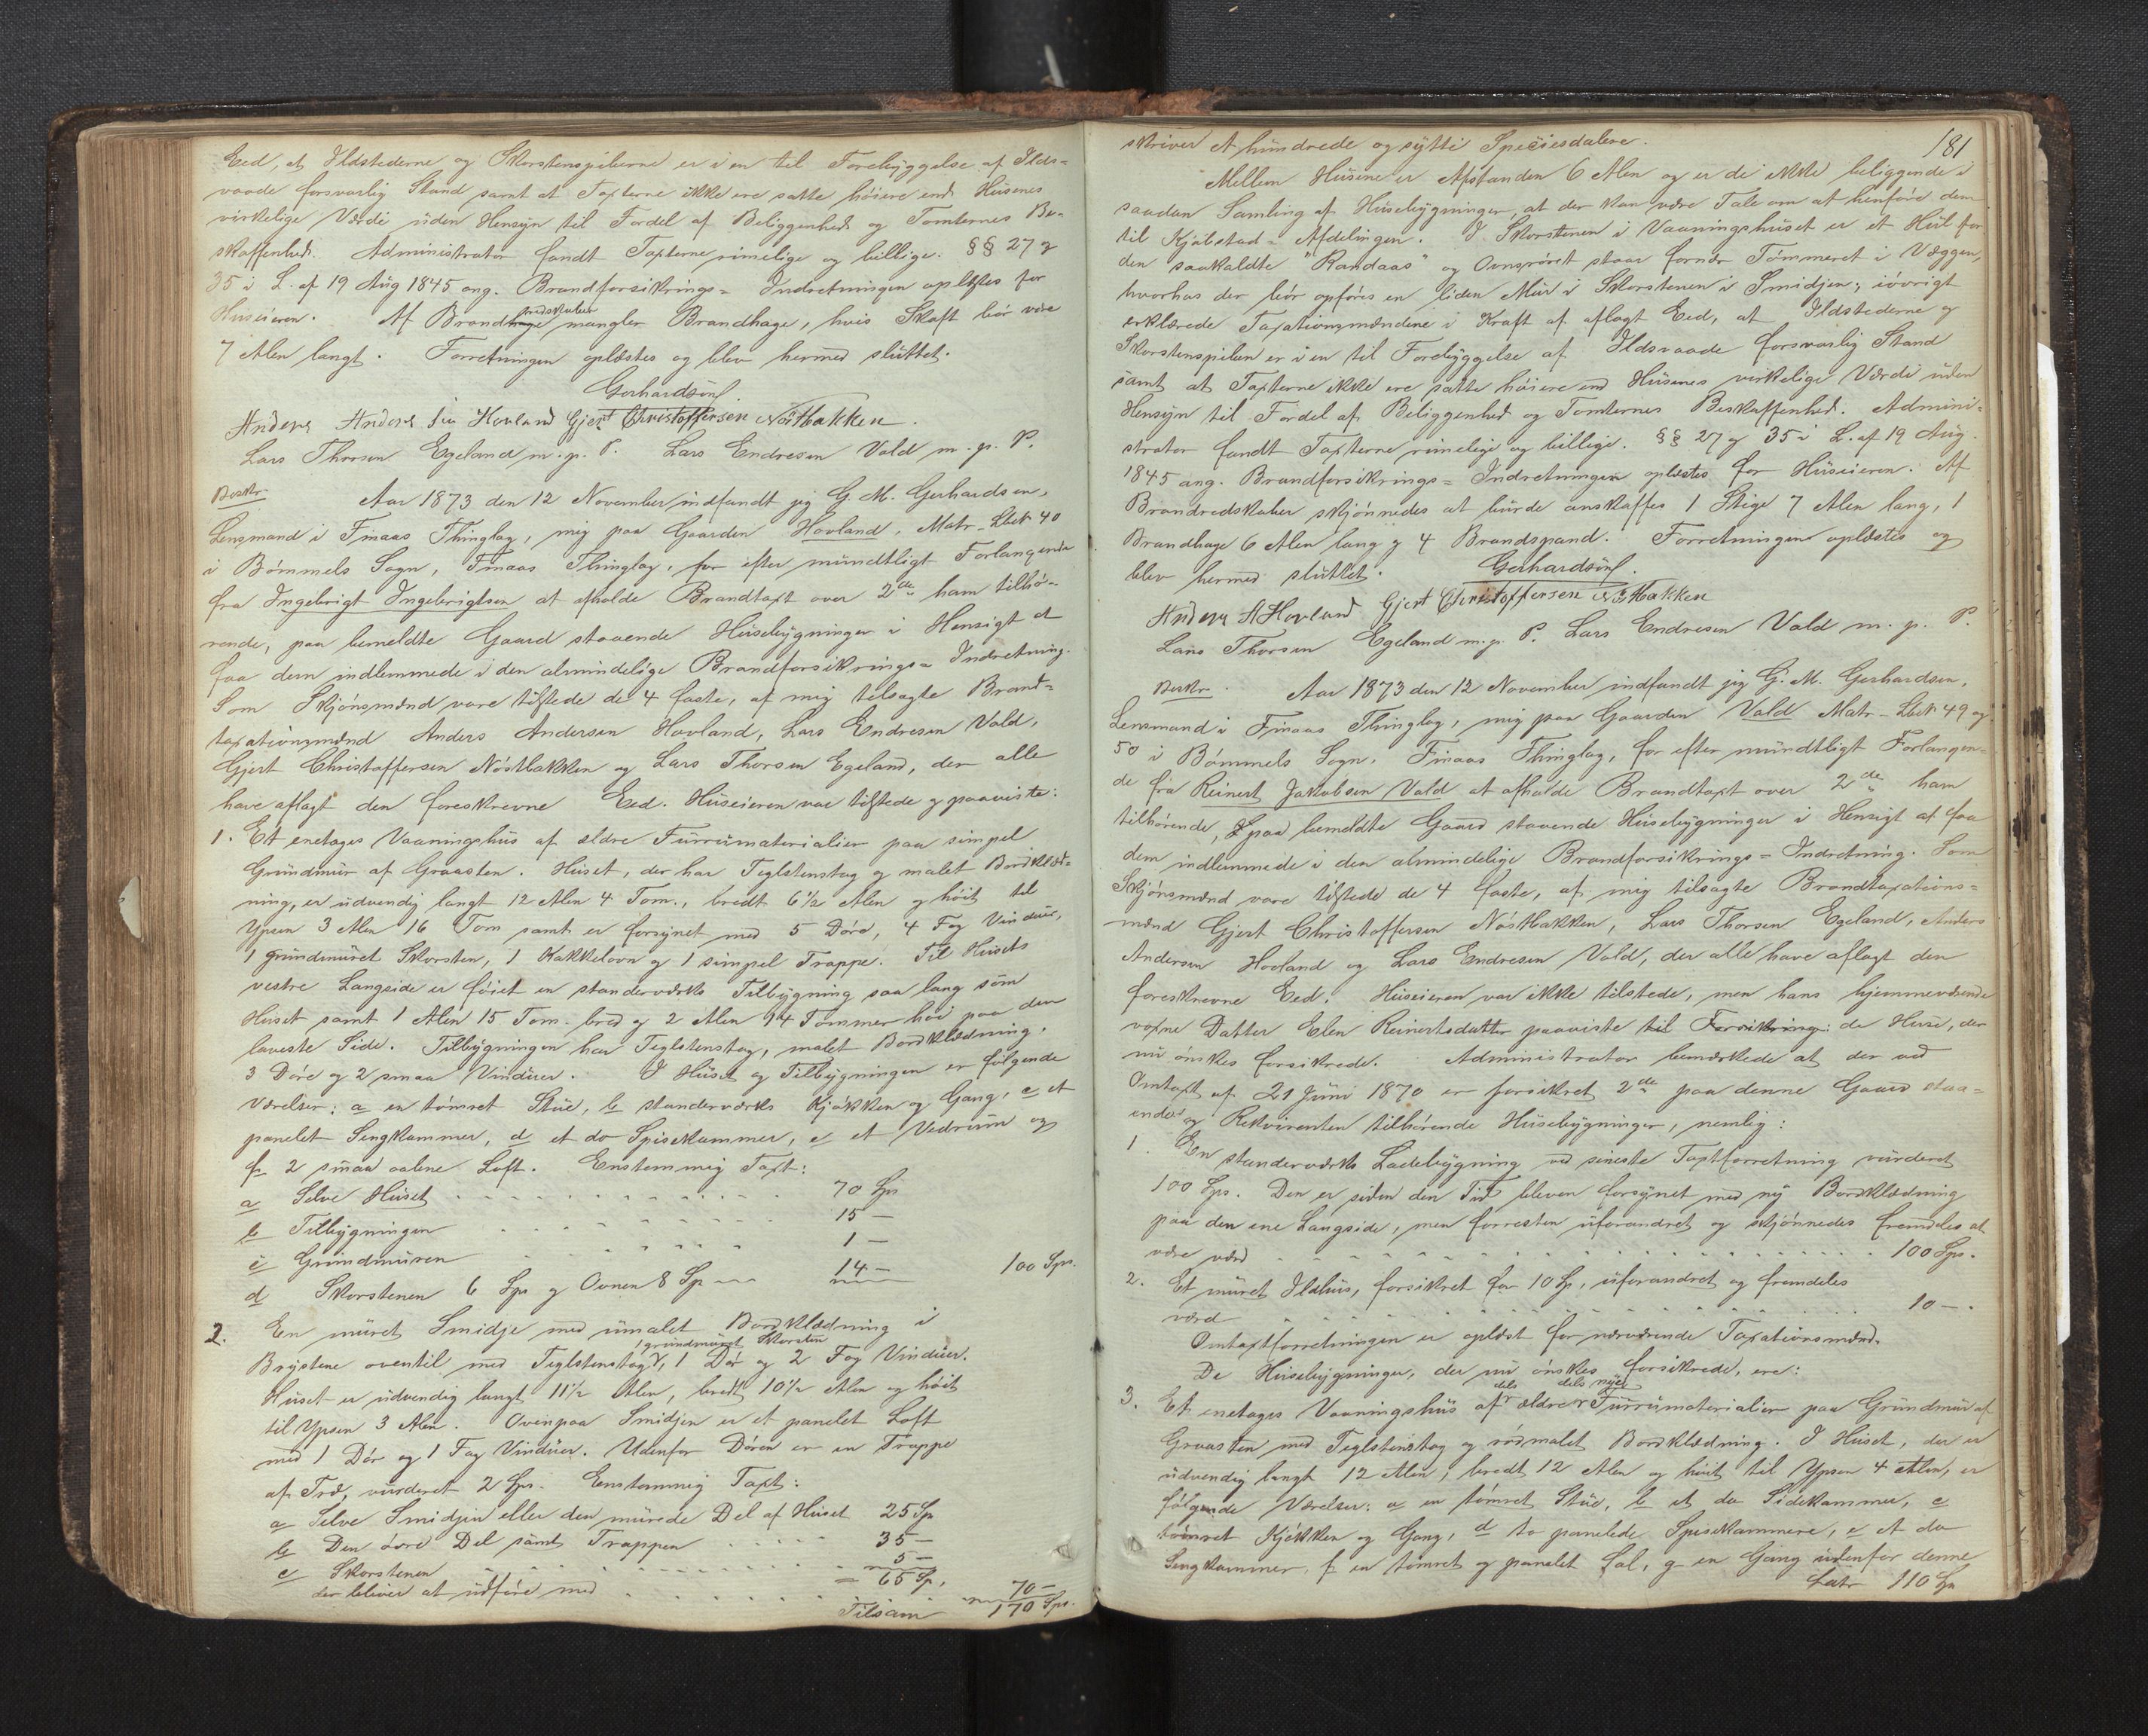 Eed, at Ildstederne og Skorstenspiberne er i en til Forebyggelse af Ilds-
vaade forsvarlig Stand samt at Taxterne ikke ere satte høiere end Husenes
virkelige Værdi uden Hensyn til Fordel af Beliggenhed og Tomternes Be-
skaffenhed. Administrator fandt Taxterne rimelige og billige. §§ 27 og
35 i L. af 19 Aug 1845 ang. Brandforsikrings- Indretningen oplæstes for
Huseieren. Af Brandredskaber mangler Brandhage, hvis Skaft bør være
7 Alen langt. Forretningen oplæstes og blev hermed sluttet.
Gerhardsen.
Anders Anders Søn Hovland Gjert Christoffersen Nøstbakken.
Lars Thorsen Egeland m. p. P. Lars Endresen Vold m. p. P.
Beskr. Aar 1873 den 12 November indfandt jeg G. M. Gerhardsen,
Lensmand i Finaas Thinglag, mig paa Gaarden Hovland, Matr-Lbn 40
i Bømmels Sogn, Finaas Thinglag, for efter mundtligt Forlangende
fra Ingebrigt Ingebrigtsen at afholde Brandtaxt over 2de ham tilhø-
rende, paa bemeldte Gaard staaende Husebygninger i Hensigt at
faa dem indlemmede i den almindelige Brandforsikrings- Indretning.
Som Skjønsmænd vare tilstede de 4 faste, af mig tilsagte Brand-
taxationsmænd Anders Andersen Hovland, Lars Endresen Vold,
Gjert Christoffersen Nøstbakken og Lars Thorsen Egeland, der alle
have aflagt den foreskrevne Eed. Huseieren var tilstede og paaviste:
1. Et enetages Vaaningshus af ældre Furrumaterialier paa simpel
Grundmur af Graasten. Huset, der har Teglstenstag og malet Bordklæd-
ning, er udvendig langt 12 Alen 4 Tom., bredt 6½ Alen og høit til
Ypsen 3 Alen 16 Tom samt er forsynet med 5 Døre, 4 Fag Vinduer,
1 grundmuret Skorsten, 1 Kakkelovn og 1 simpel Trappe. Til Husets
vestre Langside er føiet en standerværks Tilbygning saa lang som
Huset samt 1 Alen 15 Tom. bred og 2 Alen 14 Tommer høi paa den
laveste Side. Tilbygningen har Teglstenstag, malet Bordklædning,
3 Døre og 2 smaa Vinduer. I Huset og Tilbygningen er følgende
Værelser: a en tømret Stue, b standerværks Kjøkken og Gang, c et
panelet Sengkammer, d et do Spisekammer, e et Vedrum og
f 2 smaa aabne Loft. Enstemmig Taxt:
a Selve Huset 70 Sps
b Tilbygningen 15 —
c Grundmuren 1 —
d Skorstenen 6 Sps og Ovnen 8 Sp 14 — 100 Sps.
2. En muret Smidje med umalet Bordklædning i
Brystene oventil med Teglstenstag, 1 grundmuret Skorsten, 1 Dør og 2 Fag Vinduer.
Huset er udvendig langt 11½ Alen, bredt 10½ Alen og høit
til Ypsen 3 Alen. Ovenpaa Smidjen er et panelet Loft
med 1 Dør og 1 Fag Vinduer. Udenfor Døren er en Trappe
af Træ, vurderet 2 Sps. Enstemmig Taxt:
a Selve Smidjen eller den murede Del af Huset 25 Sp
b Den øvre Del samt Trappen 35 —
c Skorstenen 5 —
der bliver at udføre med = 65 Sp, 70 —
Tilsam 170 Sps.
181
skriver Et hundrede og sytti Speciesdalere.
Mellem Husene er Afstanden 6 Alen og er de ikke beliggende i
saadan Samling af Husebygninger, at der kan være Tale om at henføre dem
til Kjøbstad- Afdelingen. I Skorstenen i Vaaningshuset er et Hul for
den saakaldte "Randaas" og Ovnsrøret staar fornær Tømmeret i Væggen,
hvorhos der bør opføres en liden Mur i Skorstenen i Smidjen; iøvrigt
erklærede Taxationsmændene i Kraft af aflagt Eed, at Ildstederne og
Skorstenspiben er i en til Forebyggelse af Ildsvaade forsvarlig Stand
samt at Taxterne ikke ere satte høiere end Husenes virkelige Værdi uden
Hensyn til Fordel af Beliggenhed og Tomternes Beskaffenhed. Admini-
strator fandt Taxterne rimelige og billige. §§ 27 og 35 i L. af 19 Aug.
1845 ang. Brandforsikrings- Indretningen oplæstes for Huseieren. Af
Brandredskaber skjønnedes at burde anskaffes 1 Stige 7 Alen lang, 1
Brandhage 6 Alen lang og 4 Brandspand. Forretningen oplæstes og
blev hermed sluttet. Gerhardsen.
Anders A Hovland Gjert Christoffersen Nøstbakken
Lars Thorsen Egeland m. p. P. Lars Endresen Vold m. p. P.
Beskr. Aar 1873 den 12 November indfandt jeg G. M. Gerhardsen,
Lensmand i Finaas Thinglag, mig paa Gaarden Vold Matr-Lbn 49 og
50 i Bømmels Sogn, Finaas Thinglag, for efter mundtligt Forlangen-
de fra Reinert Jakobsen Vold at afholde Brandtaxt over 2de ham
tilhørende, paa bemeldte Gaard staaende Husebygninger i Hensigt at faa
dem indlemmede i den almindelige Brandforsikrings- Indretning. Som
Skjønsmænd vare tilstede de 4 faste, af mig tilsagte Brandtaxations-
mænd Gjert Christoffersen Nøstbakken, Lars Thorsen Egeland, Anders
Andersen Hovland og Lars Endresen Vold, der alle have aflagt den
foreskrevne Eed. Huseieren var ikke tilstede, men hans hjemmeværende
voxne Datter Elen Reinertsdatter paaviste til Forsikring: de Huse, der
nu ønskes forsikrede. Administrator bemærkede at der ved
Omtaxt af 21 Juni 1870 er forsikret 2de paa denne Gaard staa-
ende og Rekvirenten tilhørende Husebygninger, nemlig:
1. En standerværks Ladebygning ved seneste Taxtforretning vurderet
100 Sps. Den er siden den Tid bleven forsynet med ny Bordklædning
paa den ene Langside, men forresten uforandret og skjønnedes fremdeles at
være værd 100 Sps.
2. Et muret Ildhus, forsikret for 10 Sp, uforandret og fremdeles
værd 10 —.
Omtaxtforretningen er oplæst for nærværende Taxationsmænd.
De Husebygninger, der nu ønskes forsikrede, ere:
3. Et enetages Vaaningshus af dels ældre dels nye Furrumaterialier paa Grundmur af
Graasten med Teglstenstag og rødmalet Bordklædning. I Huset, der er
udvendig langt 12 Alen, bredt 12 Alen og høit til Ypsen 4 Alen, er
følgende Værelser: a en tømret Stue, b et do Sidekammer, c
tømret Kjøkken og Gang, d to panelede Spisekammere, e et do
Sengkammer, f en tømret og panelet Sal, g en Gang udenfor denne
Latr 110 Sp